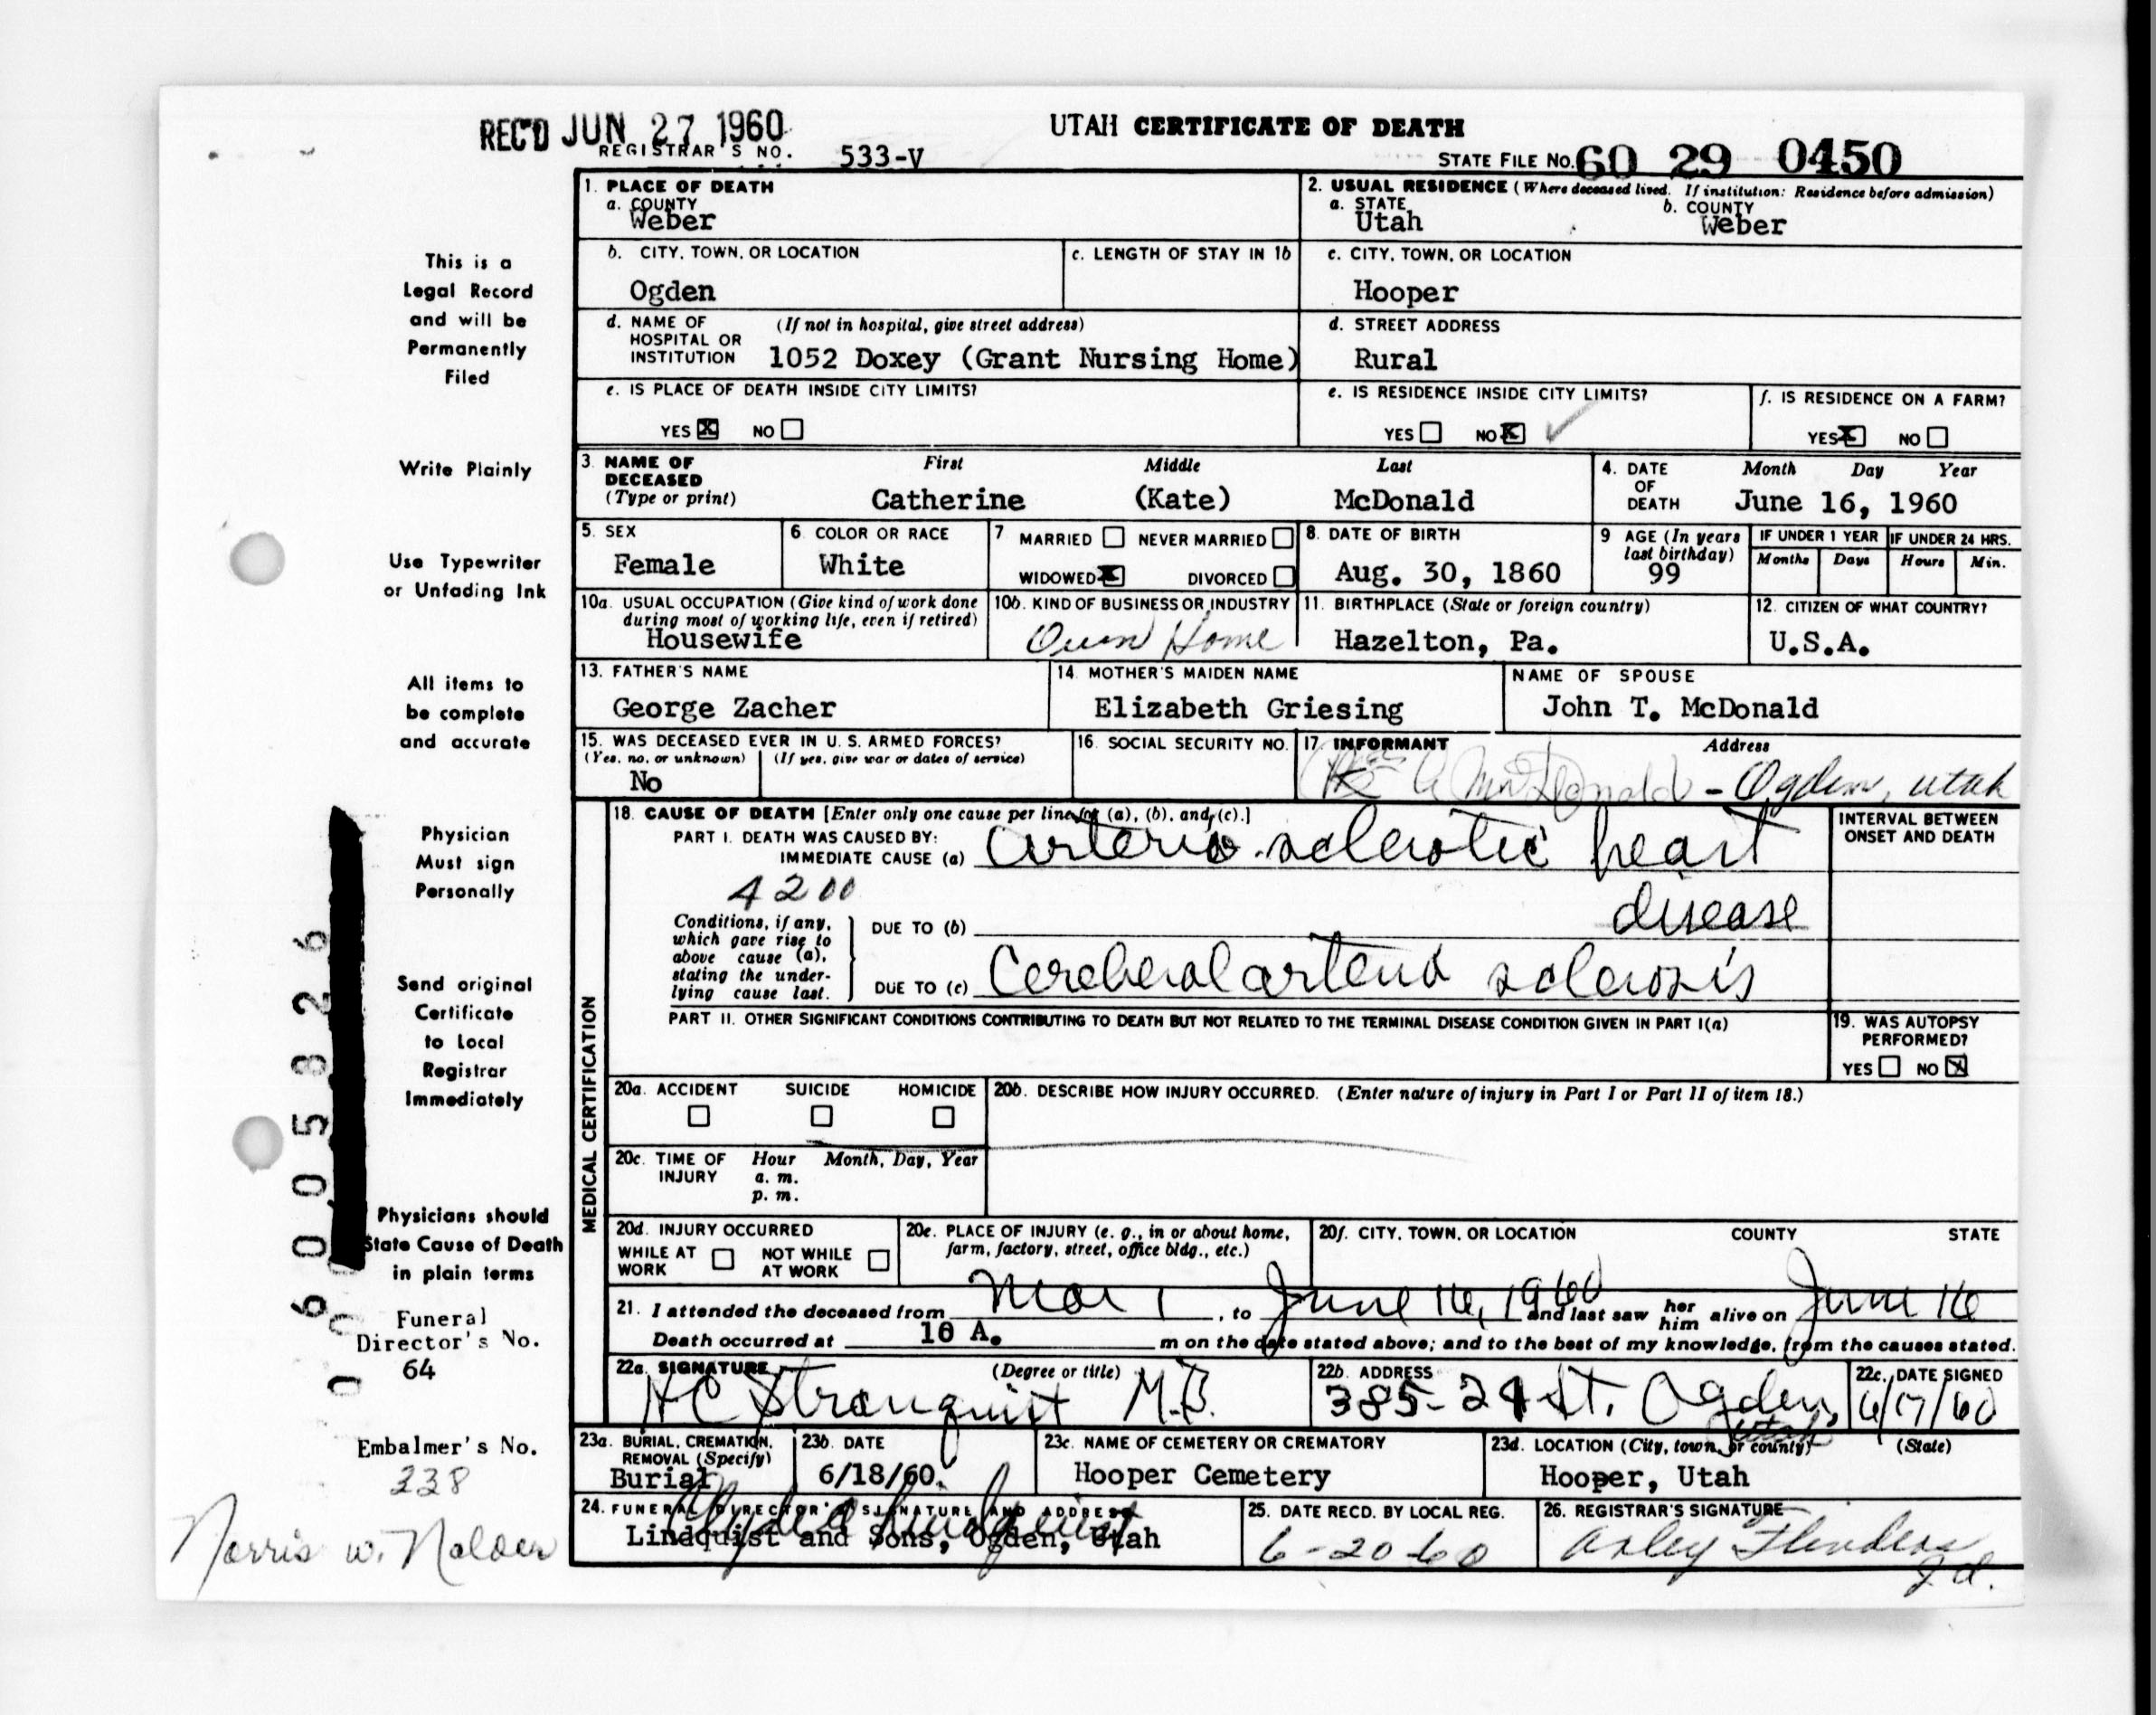 REC'D JUN 27 1960
UTAH CERTIFICATE OF DEATH
REGISTRAR'S NO. 533-V
STATE FILE No. 60 29 0450
This is a
Legal Record
and will be
Permanently
Filed
Write Plainly
Use Typewriter
or Unfading Ink
All items to
be complete
and accurate
Physician
Must sign
Personally
Send original
Certificate
to Local
Registrar
Immediately
Physicians should
State Cause of Death
in plain terms
Funeral
Director's No.
64
Embalmer's No.
338
Norris W. Nalder
1. PLACE OF DEATH
a. COUNTY
Weber
2. USUAL RESIDENCE (Where deceased lived. If institution: Residence before admission)
a. STATE b. COUNTY
Utah Weber
b. CITY, TOWN, OR LOCATION
Ogden
c. LENGTH OF STAY IN 1b
c. CITY, TOWN, OR LOCATION
Hooper
d. NAME OF (If not in hospital, give street address)
HOSPITAL OR
INSTITUTION 1052 Doxey (Grant Nursing Home)
d. STREET ADDRESS
Rural
e. IS PLACE OF DEATH INSIDE CITY LIMITS?
YES X NO
e. IS RESIDENCE INSIDE CITY LIMITS?
YES NO X
f. IS RESIDENCE ON A FARM?
YES X NO
3. NAME OF DECEASED (Type or print)
First Middle Last
Catherine (Kate) McDonald
4. DATE OF DEATH
Month Day Year
June 16, 1960
5. SEX
Female
6. COLOR OR RACE
White
7 MARRIED NEVER MARRIED
WIDOWED X DIVORCED
8. DATE OF BIRTH
Aug. 30, 1860
9 AGE (In years last birthday)
99
IF UNDER 1 YEAR IF UNDER 24 HRS.
Months Days Hours Min.
10a. USUAL OCCUPATION (Give kind of work done
during most of working life, even if retired)
Housewife
10b. KIND OF BUSINESS OR INDUSTRY
Own Home
11. BIRTHPLACE (State or foreign country)
Hazelton, Pa.
12. CITIZEN OF WHAT COUNTRY?
U.S.A.
13. FATHER'S NAME
George Zacher
14. MOTHER'S MAIDEN NAME
Elizabeth Griesing
NAME OF SPOUSE
John T. McDonald
15. WAS DECEASED EVER IN U. S. ARMED FORCES?
(Yes, no, or unknown) (If yes, give war or dates of service)
No
16. SOCIAL SECURITY NO.
17. INFORMANT Address
McDonald - Ogden, Utah
MEDICAL CERTIFICATION
18. CAUSE OF DEATH [Enter only one cause per line for (a), (b), and (c).]
PART I. DEATH WAS CAUSED BY:
IMMEDIATE CAUSE (a) Arterio-sclerotic heart
4200
disease
Conditions, if any,
which gave rise to
above cause (a),
stating the under-
lying cause last.
DUE TO (b)
DUE TO (c) Cerebral arterio sclerosis
INTERVAL BETWEEN
ONSET AND DEATH
PART II. OTHER SIGNIFICANT CONDITIONS CONTRIBUTING TO DEATH BUT NOT RELATED TO THE TERMINAL DISEASE CONDITION GIVEN IN PART I(a)
19. WAS AUTOPSY
PERFORMED?
YES NO X
20a. ACCIDENT SUICIDE HOMICIDE
20b. DESCRIBE HOW INJURY OCCURRED. (Enter nature of injury in Part I or Part II of item 18.)
20c. TIME OF INJURY
Hour Month, Day, Year
a. m.
p. m.
20d. INJURY OCCURRED
WHILE AT WORK NOT WHILE AT WORK
20e. PLACE OF INJURY (e. g., in or about home,
farm, factory, street, office bldg., etc.)
20f. CITY, TOWN, OR LOCATION COUNTY STATE
21. I attended the deceased from Mar 1, to June 16, 1960 and last saw her him alive on June 16
Death occurred at 10 A. m on the date stated above; and to the best of my knowledge, from the causes stated.
22a. SIGNATURE (Degree or title)
H C Stranquist M.D.
22b. ADDRESS
385-24 St. Ogden, Utah
22c. DATE SIGNED
6/17/60
23a. BURIAL, CREMATION,
REMOVAL (Specify)
Burial
23b. DATE
6/18/60.
23c. NAME OF CEMETERY OR CREMATORY
Hooper Cemetery
23d. LOCATION (City, town, or county) (State)
Hooper, Utah
24. FUNERAL DIRECTOR'S SIGNATURE AND ADDRESS
Lindquist and Sons, Ogden, Utah
25. DATE RECD. BY LOCAL REG.
6-20-60
26. REGISTRAR'S SIGNATURE
Arley Flinders